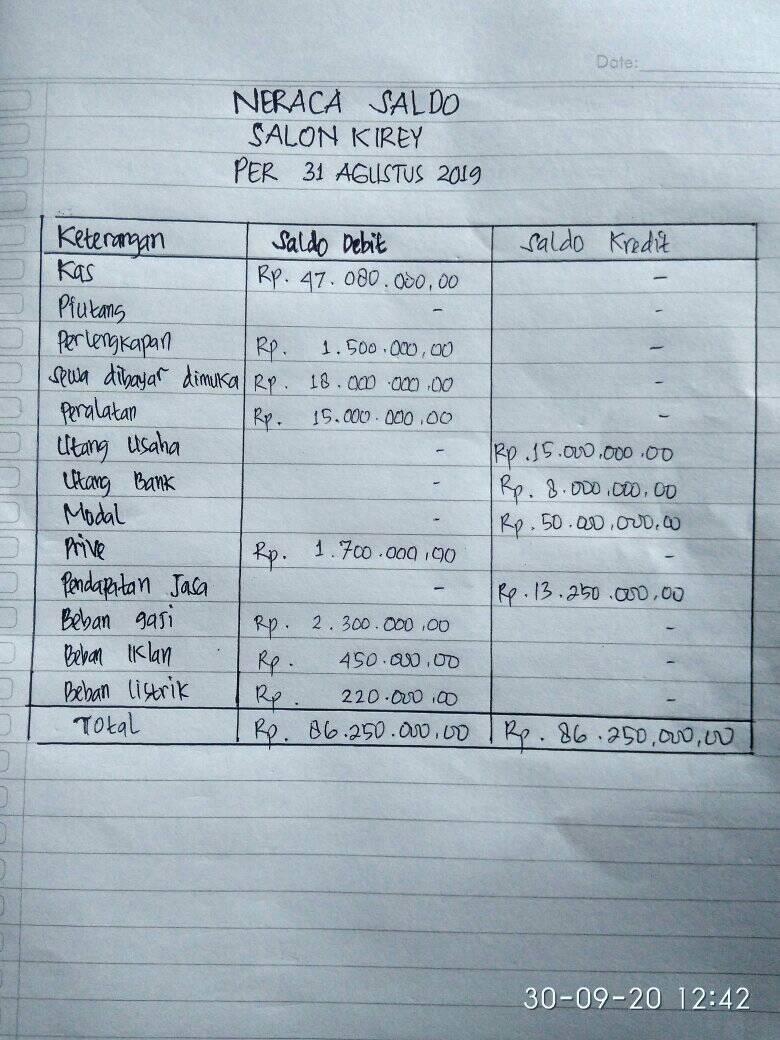 Date:
NERACA SALDO
SALON KIREY
PER 31 AGUSTUS 2019
Keterangan Saldo Debit Saldo Kredit
Kas Rp. 47.080.000,00 -
Piutang - -
Perlengkapan Rp. 1.500.000,00 -
Sewa dibayar dimuka Rp. 18.000.000,00 -
Peralatan Rp. 15.000.000,00 -
Utang Usaha - Rp. 15.000.000,00
Utang Bank - Rp. 8.000.000,00
Modal - Rp. 50.000.000,00
Prive Rp. 1.700.000,00 -
Pendapatan Jasa - Rp. 13.250.000,00
Beban gaji Rp. 2.300.000,00 -
Beban Iklan Rp. 450.000,00 -
Beban listrik Rp. 220.000,00 -
Total Rp. 86.250.000,00 Rp. 86.250.000,00
30-09-20 12:42